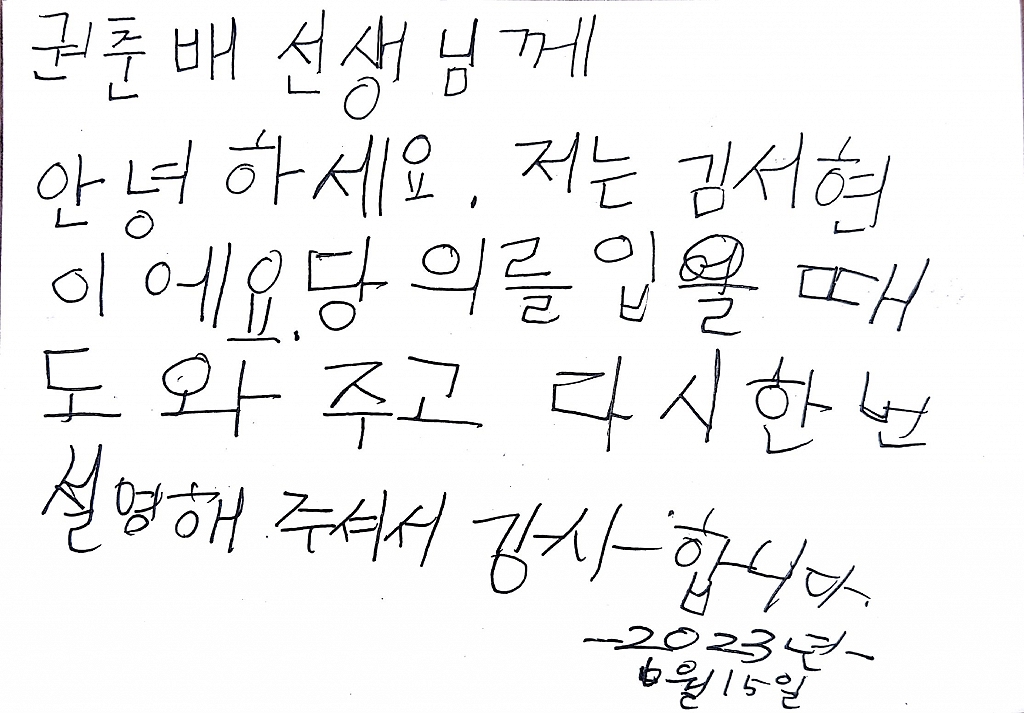 권춘배 선생님께
안녕하세요. 저는 김서현
이에요. 당의를 입을 때
도와주고 다시 한번
설명해 주셔서 강사합니다.
-2023년-
6월 15일